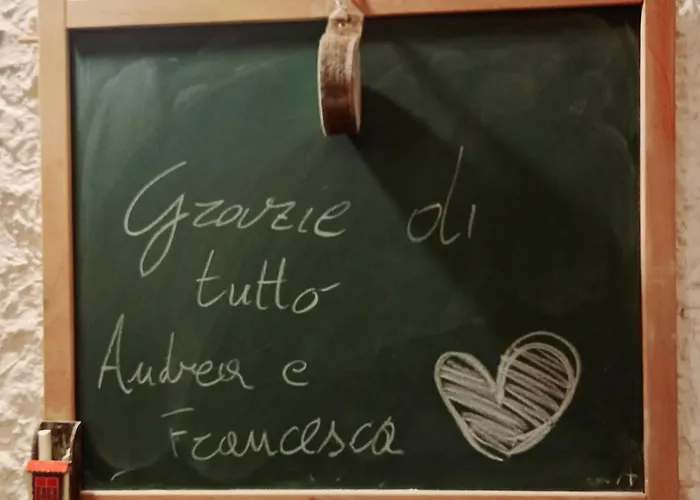 Grazie di
tutto
Andrea e
Francesca